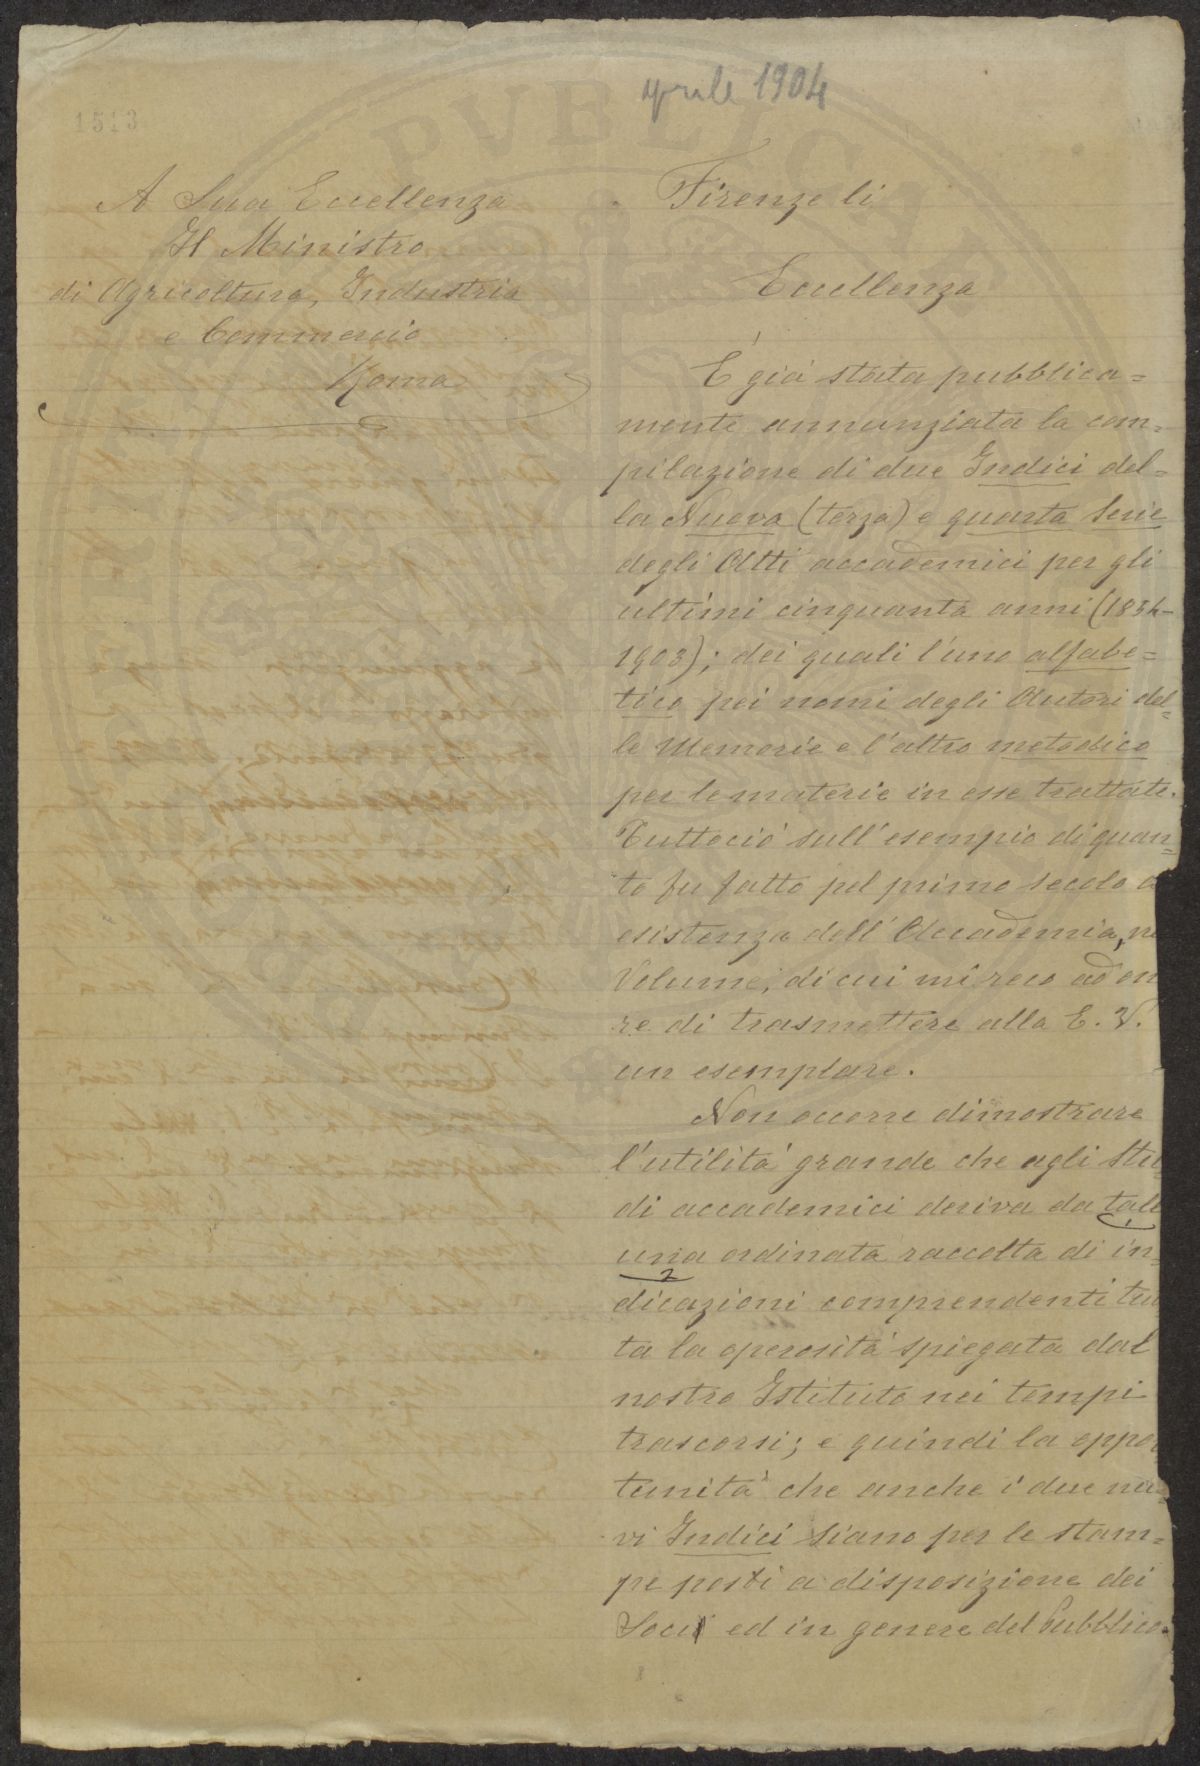 aprile 1904
1513
A Sua Eccellenza
Il Ministro
di Agricoltura, Industria
e Commercio
Roma
Firenze li
Eccellenza
È già stata pubblica=
mente annunziata la com=
pilazione di due Indici del=
la Nuova (terza) e quarta Serie
degli Atti accademici per gli
ultimi cinquanta anni (1854-
1903); dei quali l'uno alfabe=
tico pei nomi degli Autori del=
le Memorie e l'altro metodico
per le materie in esse trattate.
Tuttociò sull'esempio di quan=
to fu fatto pel primo secolo d
esistenza dell'Accademia, ne
Volume, di cui mi reco ad on
re di trasmettere alla E. V.
un esemplare.
Non occorre dimostrare
l'utilità grande che agli Stu
di accademici deriva da tale
una ordinata raccolta di in=
dicazioni comprendenti tut
ta la operosità spiegata dal
nostro Istituto nei tempi
trascorsi; e quindi la oppor
tunità che anche i due nuo=
vi Indici siano per le stam=
pe posti a disposizione dei
Soci ed in genere del Pubblico.